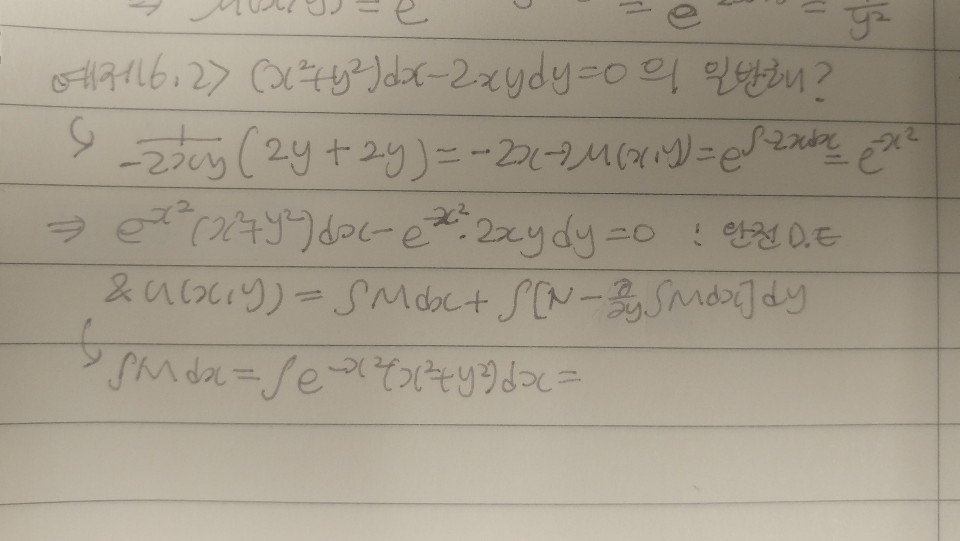 ⇒ μ(x,y) = e = e = 1/y²
예제6.2> (x²+y²)dx-2xydy=0 의 일반해?
↳ 1/-2xy (2y+2y) = -2x → μ(x,y) = e^∫-2xdx = e^-x²
⇒ e^-x²(x²+y²)dx - e^-x²·2xydy=0 : 완전 D.E
& u(x,y) = ∫Mdx + ∫[N - ∂/∂y ∫Mdx]dy
↳ ∫Mdx = ∫e^-x²(x²+y²)dx =